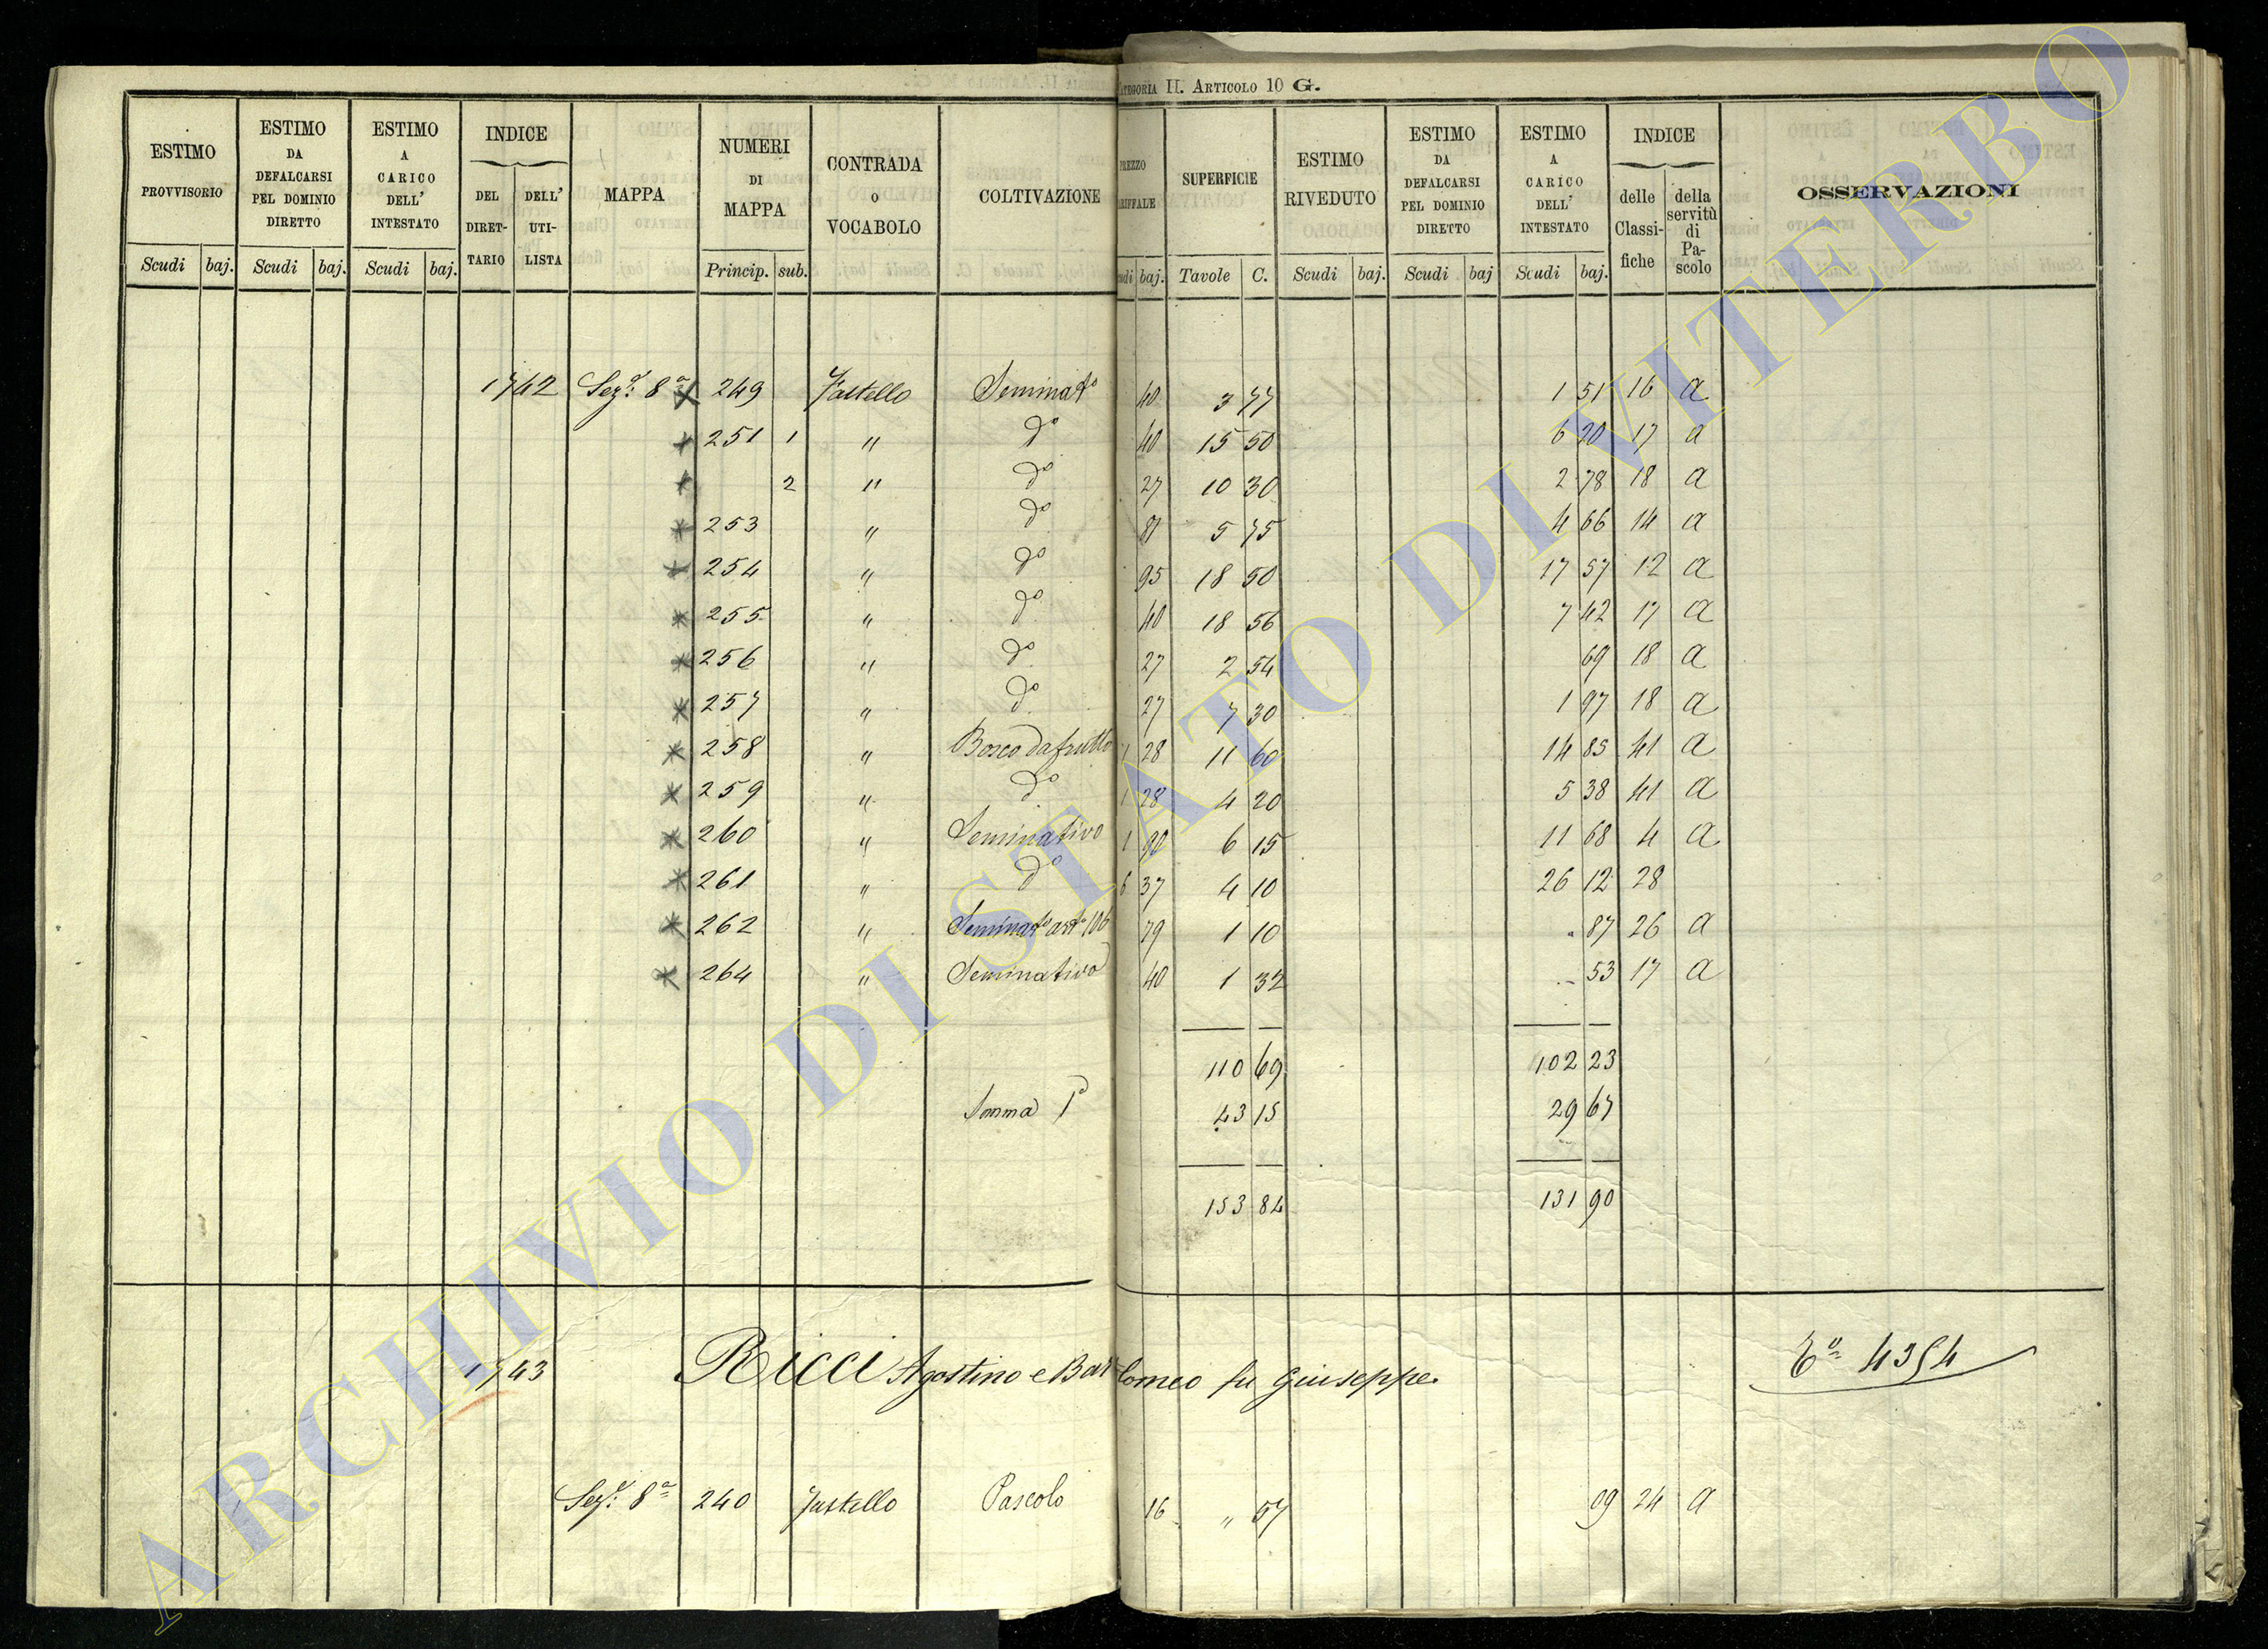 CATEGORIA II. ARTICOLO 10 G.
ESTIMO PROVVISORIO | ESTIMO DA DEFALCARSI PEL DOMINIO DIRETTO | ESTIMO A CARICO DELL' INTESTATO | INDICE DEL DIRETTARIO | DELL' UTILISTA | MAPPA | NUMERI DI MAPPA | CONTRADA O VOCABOLO | COLTIVAZIONE | PREZZO | SUPERFICIE | ESTIMO RIVEDUTO | ESTIMO DA DEFALCARSI PEL DOMINIO DIRETTO | ESTIMO A CARICO DELL' INTESTATO | INDICE delle Classifiche | della servitù di Pascolo | OSSERVAZIONI
Scudi baj. Scudi baj. Scudi baj. Princip. sub. baj. Tavole C. Scudi baj. Scudi baj Scudi baj.
1742 Sezᵉ 8ª 249 Fastello Seminatº 40 3 77 1 51 16 a
251 1 " dº 40 15 50 6 20 17 a
2 " dº 27 10 30 2 78 18 a
253 " dº 81 5 75 4 66 14 a
254 " dº 95 18 50 17 57 12 a
255 " dº 40 18 56 7 42 17 a
256 " dº 27 2 54 69 18 a
257 " dº 27 7 30 1 97 18 a
258 " Bosco da frutto 1 28 11 60 14 85 41 a
259 " dº 1 28 4 20 5 38 41 a
260 " Seminativo 1 90 6 15 11 68 4 a
261 " dº 6 37 4 10 26 12 28
262 " Seminatº 79 1 10 87 26 a
264 " Seminativo 40 1 32 53 17 a
110 69 102 23
Somma 43 15 29 67
153 84 131 90
1743 Ricci Agostino e Bartolomeo fu Giuseppe. 4354
Sezᵉ 8ª 240 Fastello Pascolo 16 " 57 09 24 a
ARCHIVIO DI STATO DI VITERBO